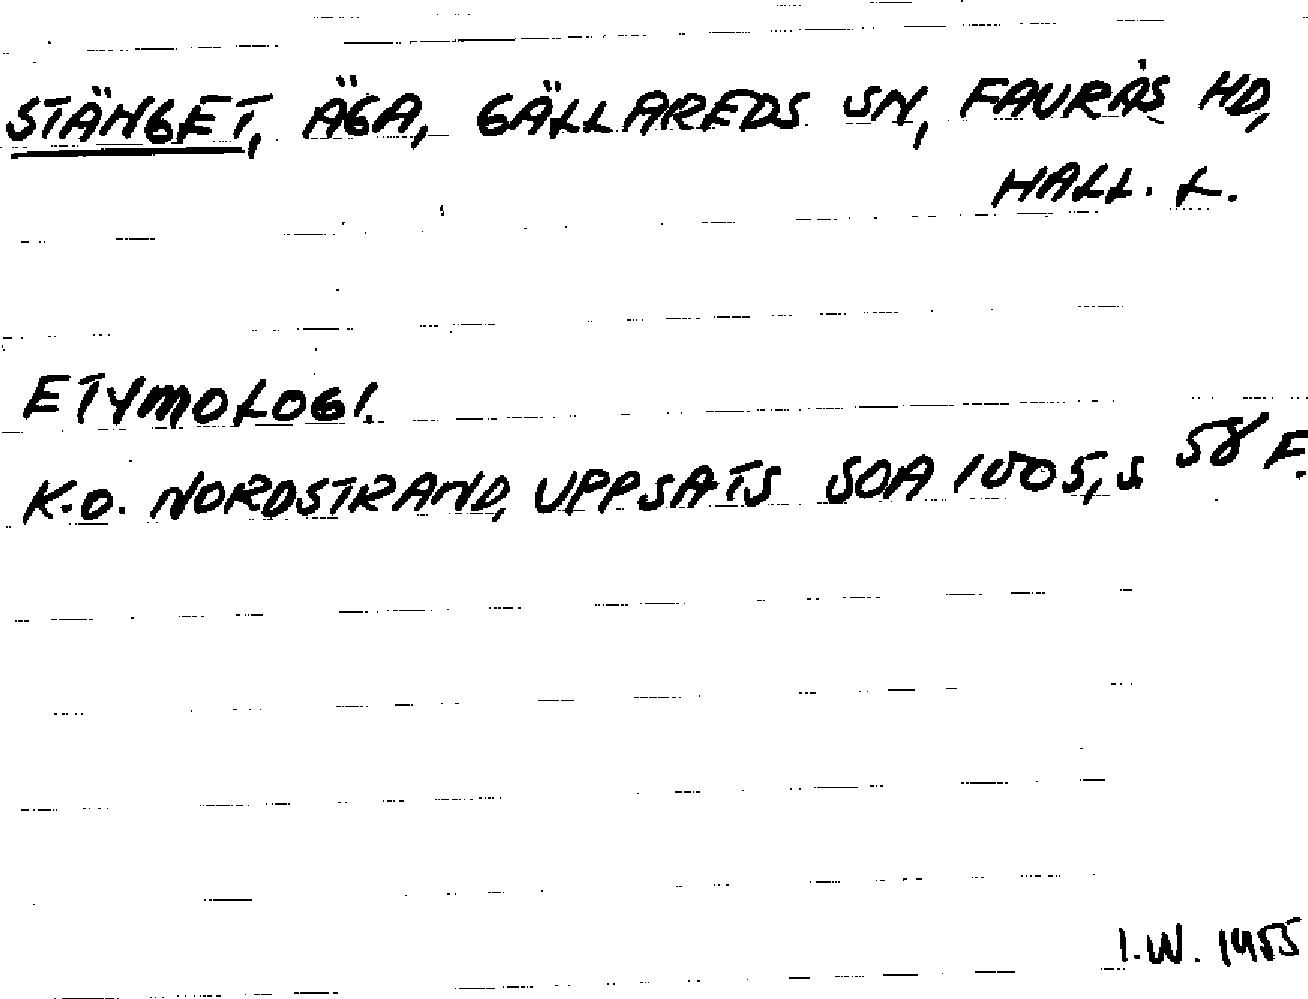 STÄNGET, ÄGA, GÄLLAREDS SN, FAURÅS HD,
HALL. L.
ETYMOLOGI.
K.O. NORDSTRAND, UPPSATS SOA 1005, S. 58 F.
I.W. 1955